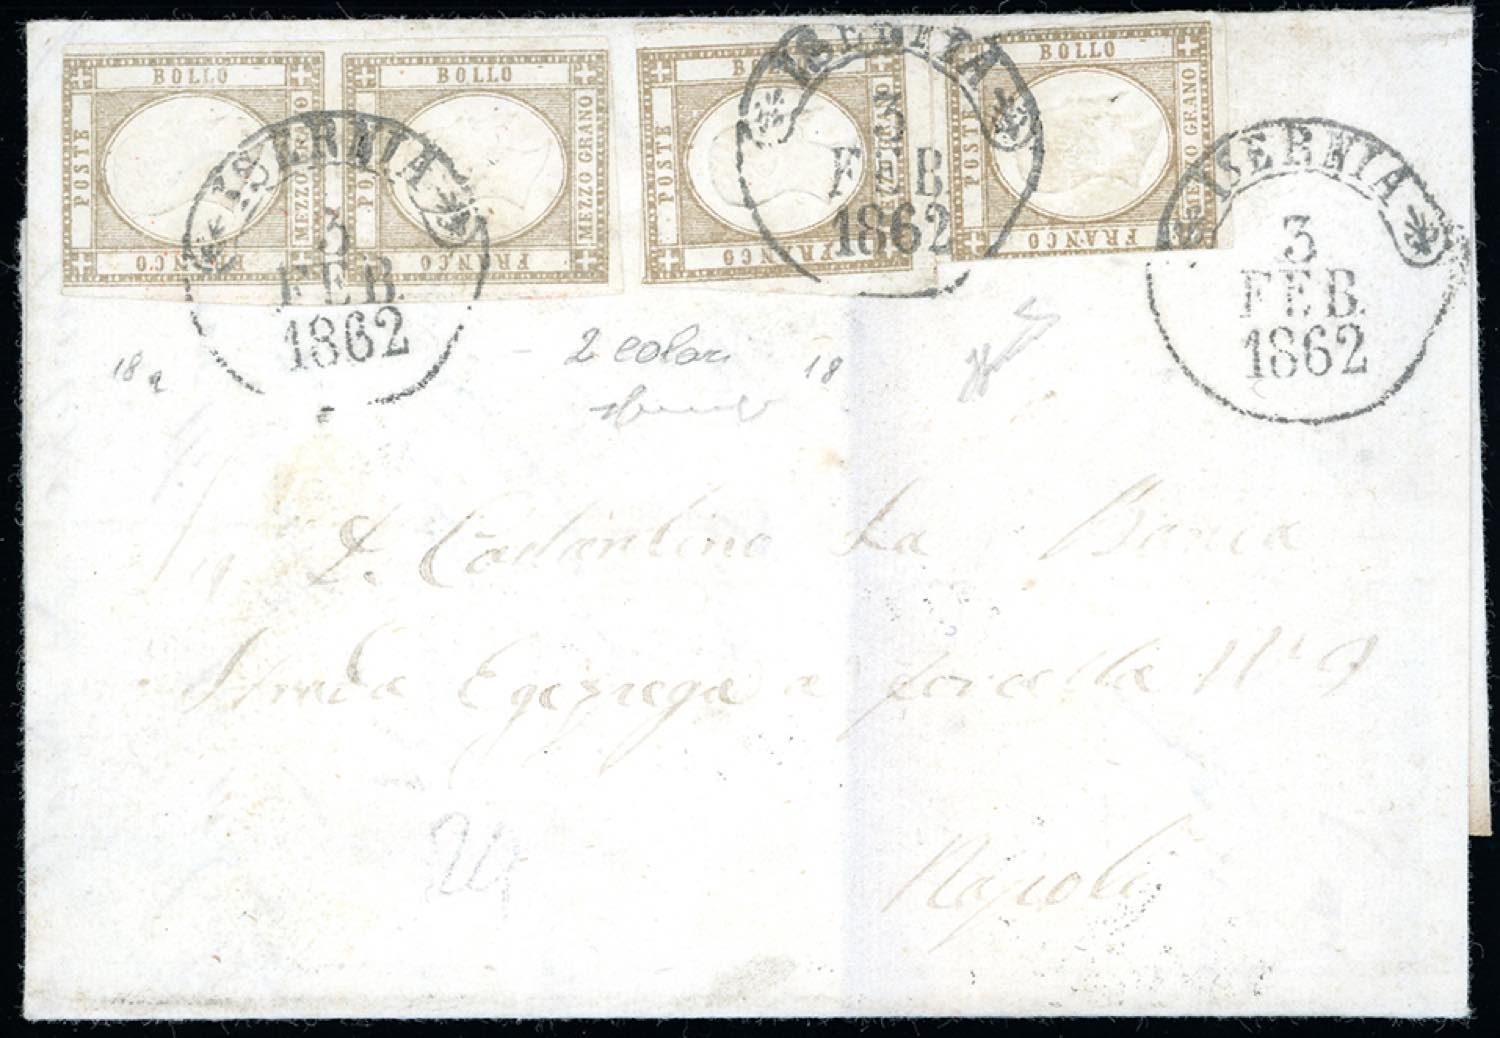 BOLLO BOLLO BOLLO BOLLO
POSTE MEZZO GRANO POSTE MEZZO GRANO POSTE MEZZO GRANO POSTE MEZZO GRANO
FRANCO FRANCO FRANCO FRANCO
ISERNIA
3
FEB.
1862
ISERNIA
3
FEB.
1862
ISERNIA
3
FEB.
1862
18 a 2 colori 18
D. Costantino La Banca
Strada Egeziaca a Forcella N° 9
Napoli